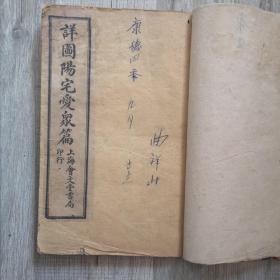 詳圖陽宅愛眾篇
上海會文堂書局
印行
康德四年
九月
曲祥